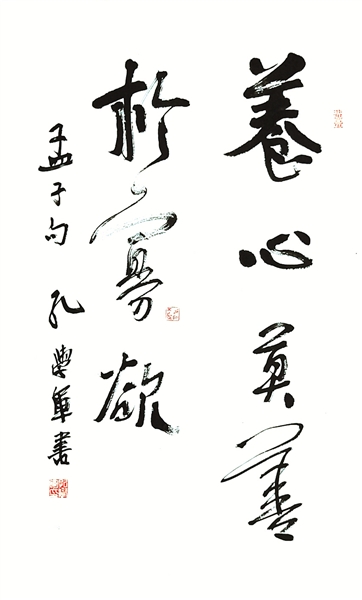 養心莫善
於寡欲
孟子句 孔學軍書